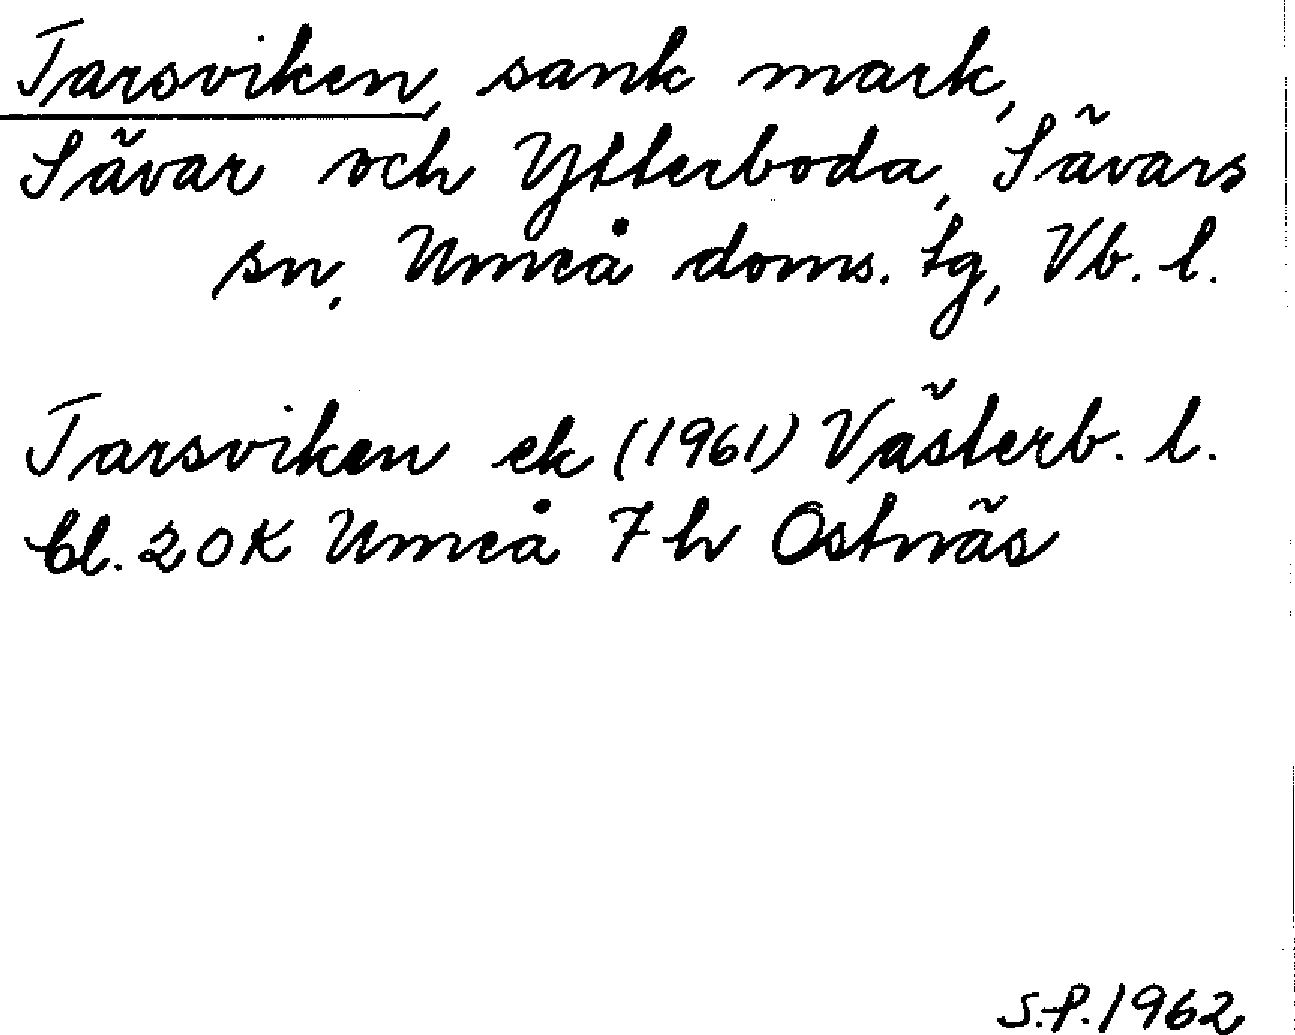 Tarsviken, sank mark,
Sävar och Ytterboda, Sävars
sn, Umeå doms. tg, Vb. l.
Tarsviken ek (1961) Västerb. l.
bl. 20K Umeå 7h Ostnäs
S.P. 1962